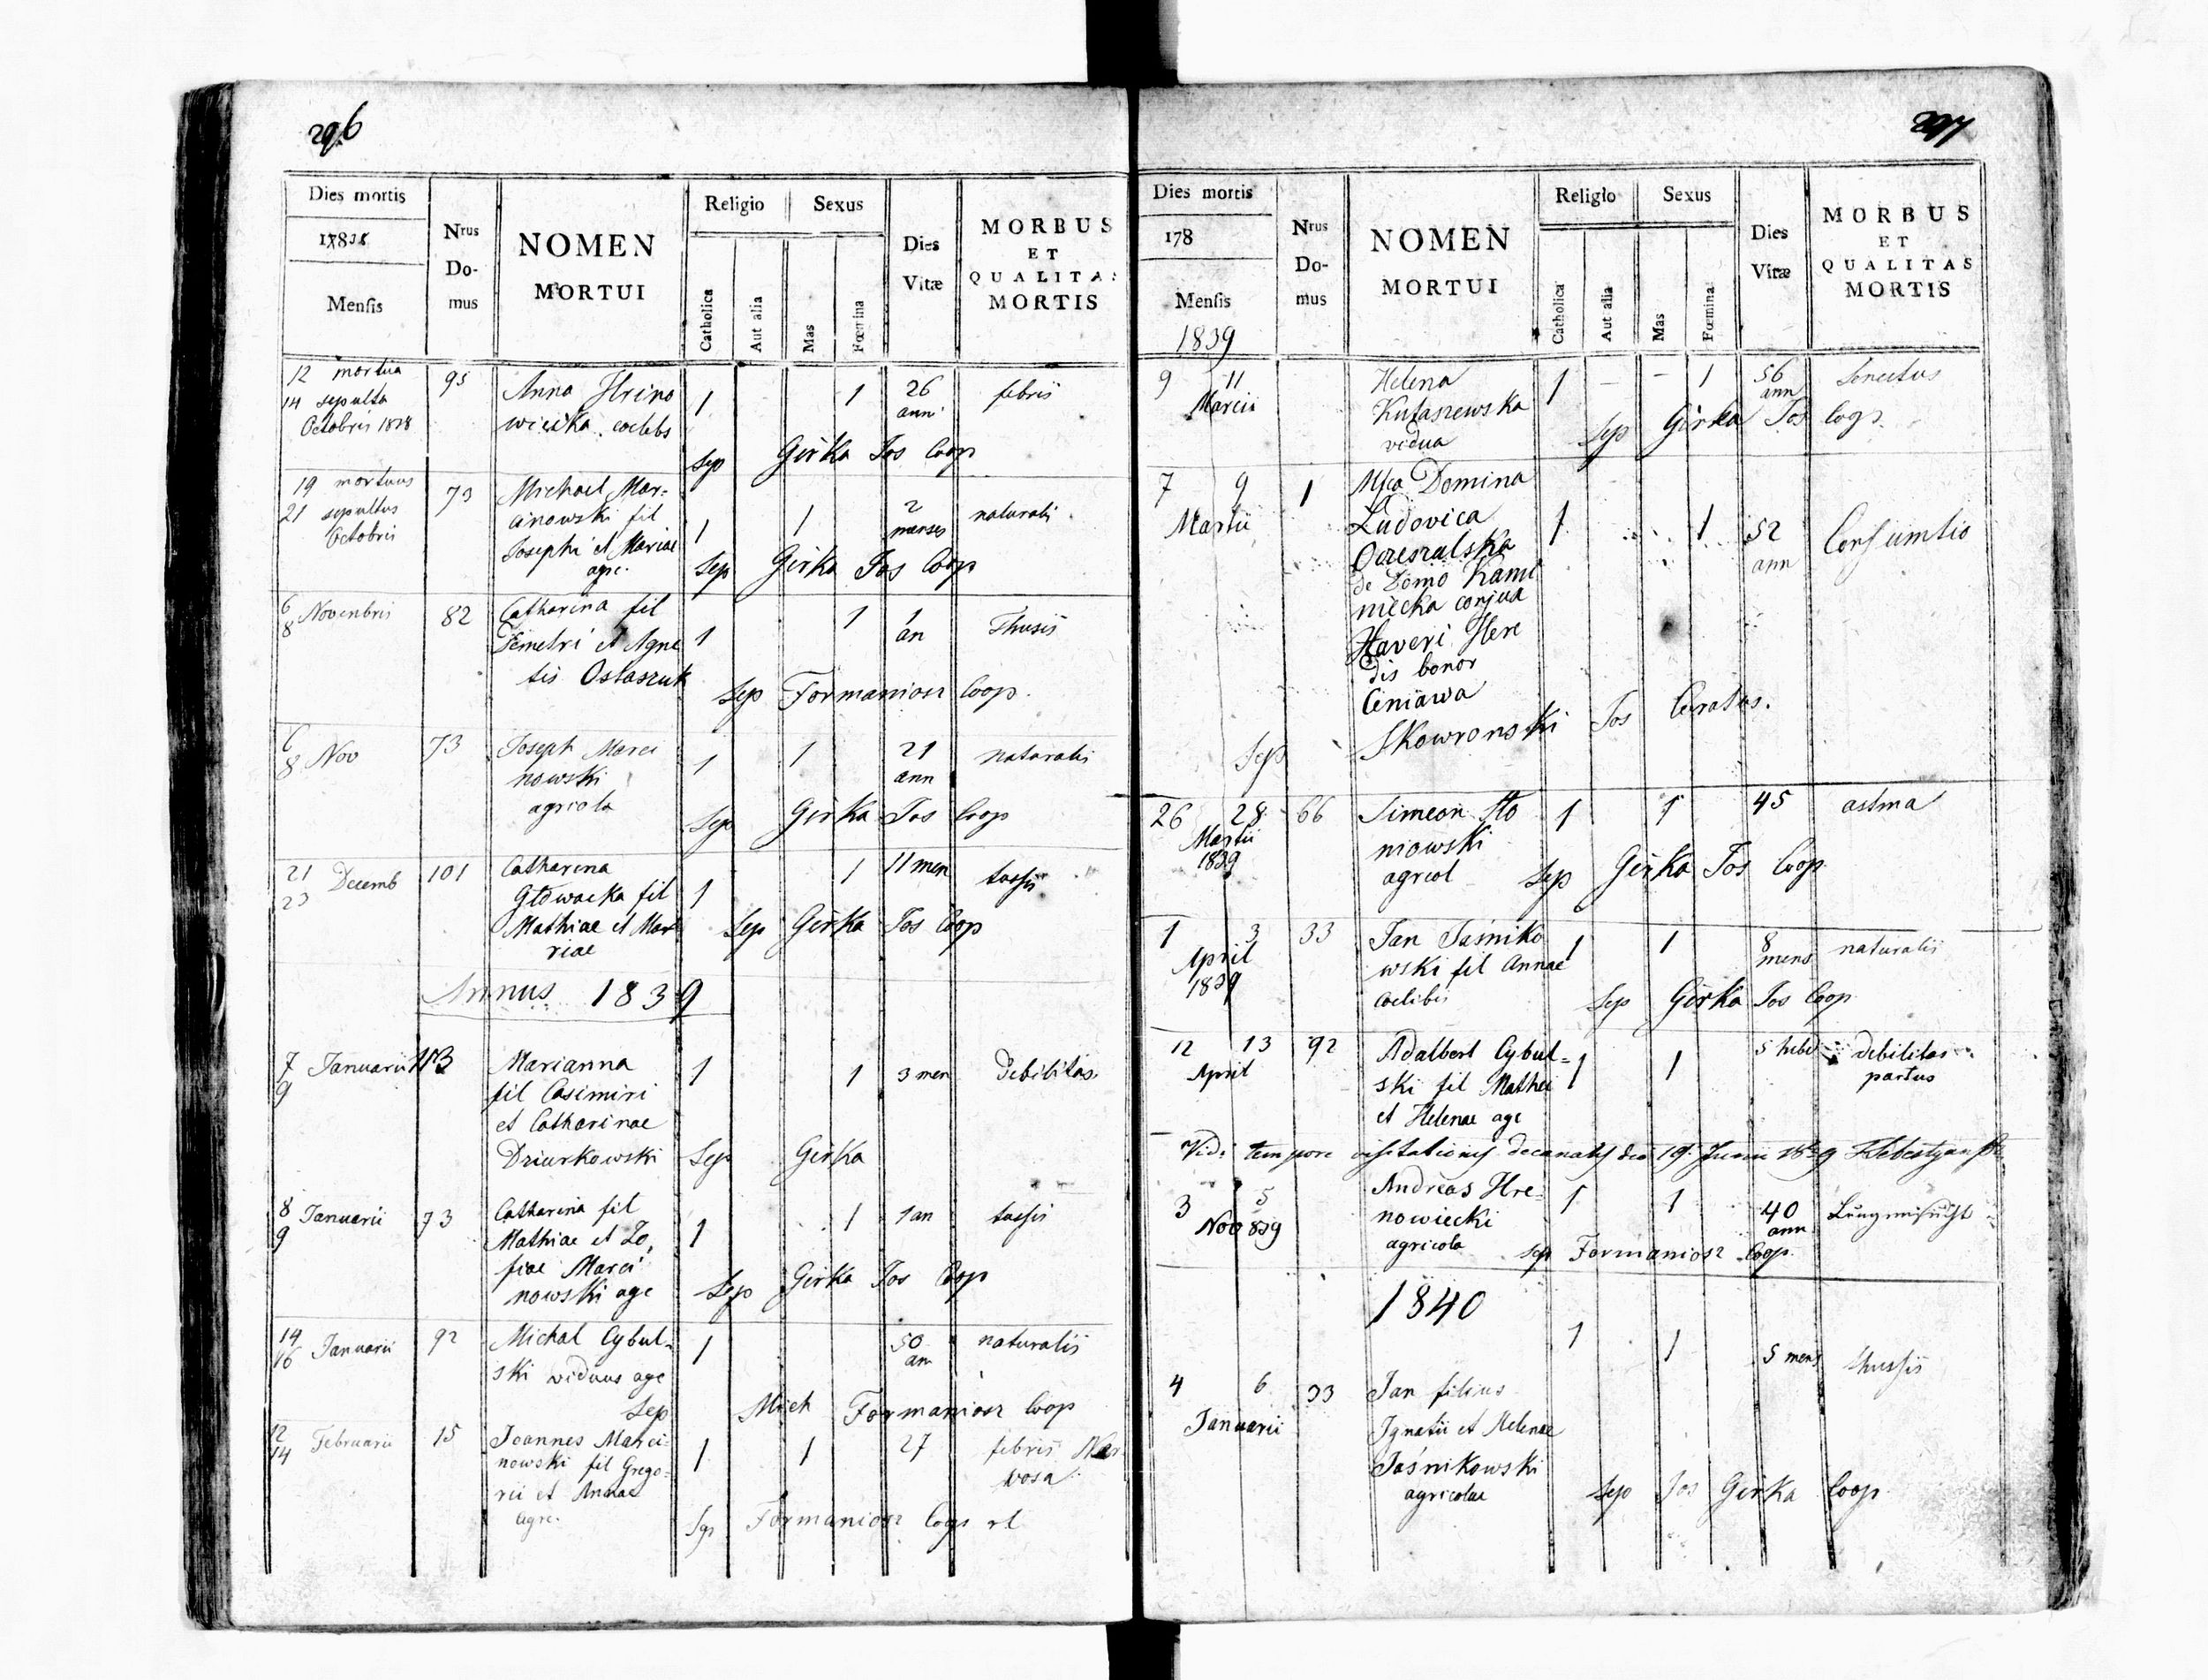 296
Dies mortis
17838
Mensis
Nrus
Do-
mus
NOMEN
MORTUI
Religio
Sexus
Catholica
Aut alia
Mas
Fœmina
Dies
Vitæ
MORBUS
ET
QUALITAS
MORTIS
12 mortua
14 sepulta
Octobris 1838
95
Anna Hrino
wiecka coelebs
1
1
26
ann
febris
Sep Girka Jos Coop
19 mortuus
21 sepultus
Octobris
73
Michael Mar-
cinowski fil
Josephi et Mariae
agr.
1
1
2
menses
naturali
Sep Girka Jos Coop
6
8 Novembris
82
Catharina fil
Demetri et Agne
tis Ostaszuk
1
1
1
an
Thusis
Sep Formaniosz Coop.
6
8 Nov
73
Joseph Marci
nowski
agricola
1
1
21
ann
naturalis
Sep Girka Jos Coop
21
23 Decemb
101
Catharina
Głowacka fil
Mathiae et Mar
riae
1
1
11 men
tussis
Sep Girka Jos Coop
Annus 1839
7
9 Januarii
113
Marianna
fil Casimiri
et Catharinae
Dziurkowski
1
1
3 men
Debilitas
Sep Girka
8
9 Januarii
73
Catharina fil
Mathiae et Zo,
fiae Marci
nowski agr
1
1
1 an
tussis
Sep Girka Jos Coop
14
16 Januarii
92
Michal Cybul-
ski viduus agr
1
50
an
naturalis
Sep Mich Formaniosz Coop
12
14 Februarii
15
Joannes Marci-
nowski fil Grego-
rii et Annae
agr.
1
1
27
febris Ner
vosa
Sep Formaniosz Coop rl
297
Dies mortis
178
Mensis
1839
Nrus
Do-
mus
NOMEN
MORTUI
Religio
Sexus
Catholica
Aut alia
Mas
Fœmina
Dies
Vitæ
MORBUS
ET
QUALITAS
MORTIS
9 11
Marcii
Helena
Kutaszewska
vidua
1 – – 1
56
ann
Senectus
Sep Girka Jos Coop.
7 9
Martii
1
Mfca Domina
Ludovica
de Domo Kami
niecka conjux
Xaveri Here
dis bonor
Ceniawa
1
1
52
ann
Consumtio
Sep Skowronski Jos Curatus.
26 28
Martii
1839
66
Simeon Sto
niowski
agricol
1
1
45
astma
Sep Girka Jos Coop
1 3
April
1839
33
Jan Jaśniko
wski fil Annae
coelibis
1
1
8
mens
naturalis
Sep Girka Jos Coop
12 13
April
92
Adalbert Cybul-
ski fil Mathei
et Helenae agr
1
1
5 hebd
debilitas
partus
Vidi tempore visitationis decanalis die 19. Junii 1839
3 5
Nov 839
Andreas Hre-
nowiecki
agricola
1
1
40
ann
Lungensucht
Sep Formaniosz Coop.
1840
4 6
Januarii
33
Jan filius
Ignatii et Helenae
Jaśnikowski
agricolae
1
1
5 mens
thussis
Sep Jos Girka Coop